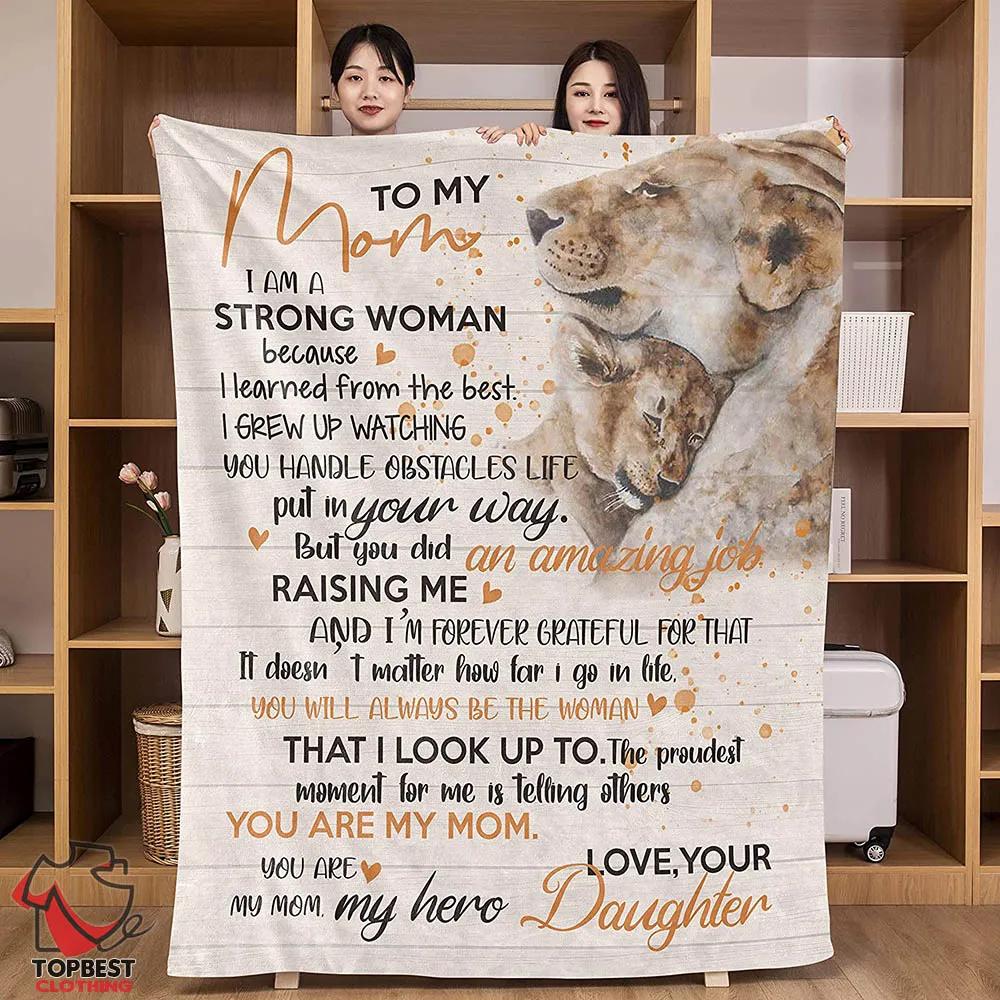 TO MY
Mom
I AM A
STRONG WOMAN
because
I learned from the best.
I GREW UP WATCHING
YOU HANDLE OBSTACLES LIFE
put in your way.
But you did an amazing job
RAISING ME
AND I'M FOREVER GRATEFUL FOR THAT
It doesn't matter how far i go in life,
YOU WILL ALWAYS BE THE WOMAN
THAT I LOOK UP TO. The proudest
moment for me is telling others
YOU ARE MY MOM.
YOU ARE
MY MOM, my hero
LOVE, YOUR
Daughter
TOPBEST
CLOTHING